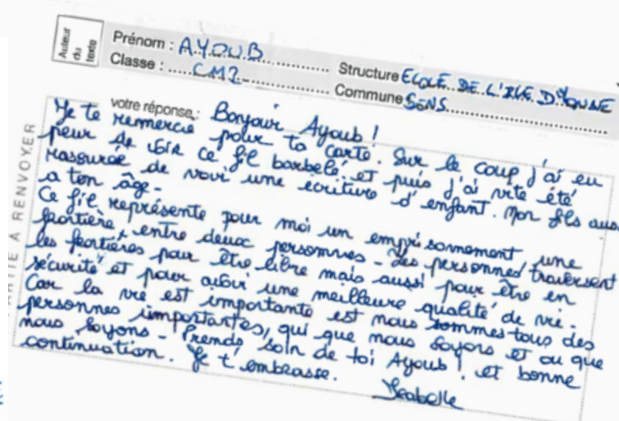 Auteur du texte
Prénom : AYOUB
Structure ECOLE DE L'ILE D'YONNE
Classe : CM2
Commune SENS
PARTIE A RENVOYER
votre réponse : Bonjour Ayoub !
Je te remercie pour ta carte. Sur le coup j'ai eu
peur de voir ce fil barbelé et puis j'ai vite été
rassurée de voir une ecriture d'enfant. Mon fils aussi
a ton âge -
Ce fil représente pour moi un emprisonnement, une
frontière entre deux personnes - Les personnes traversent
les frontières pour être libre mais aussi pour être en
sécurité et pour avoir une meilleure qualité de vie.
Car la vie est importante est nous sommes tous des
personnes importantes, qui que nous soyons et ou que
nous soyons - Prends soin de toi Ayoub ! et bonne
continuation. Je t'embrasse.
Isabelle